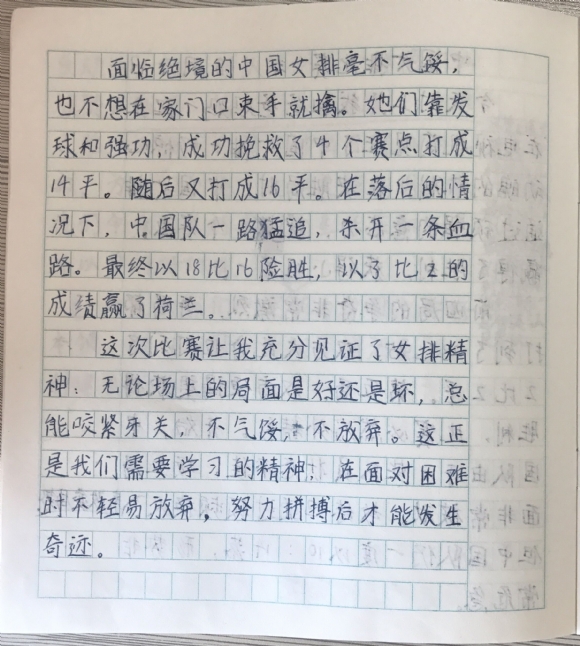 面临绝境的中国女排毫不气馁，
也不想在家门口束手就擒。她们靠发
球和强功，成功挽救了4个赛点打成
14平。随后又打成16平。在落后的情
况下，中国队一路猛追，杀开一条血
路。最终以18比16险胜，以3比2的
成绩赢了荷兰。
这次比赛让我充分见证了女排精
神：无论场上的局面是好还是坏，总
能咬紧牙关，不气馁，不放弃。这正
是我们需要学习的精神，在面对困难
时不轻易放弃，努力拼搏后才能发生
奇迹。